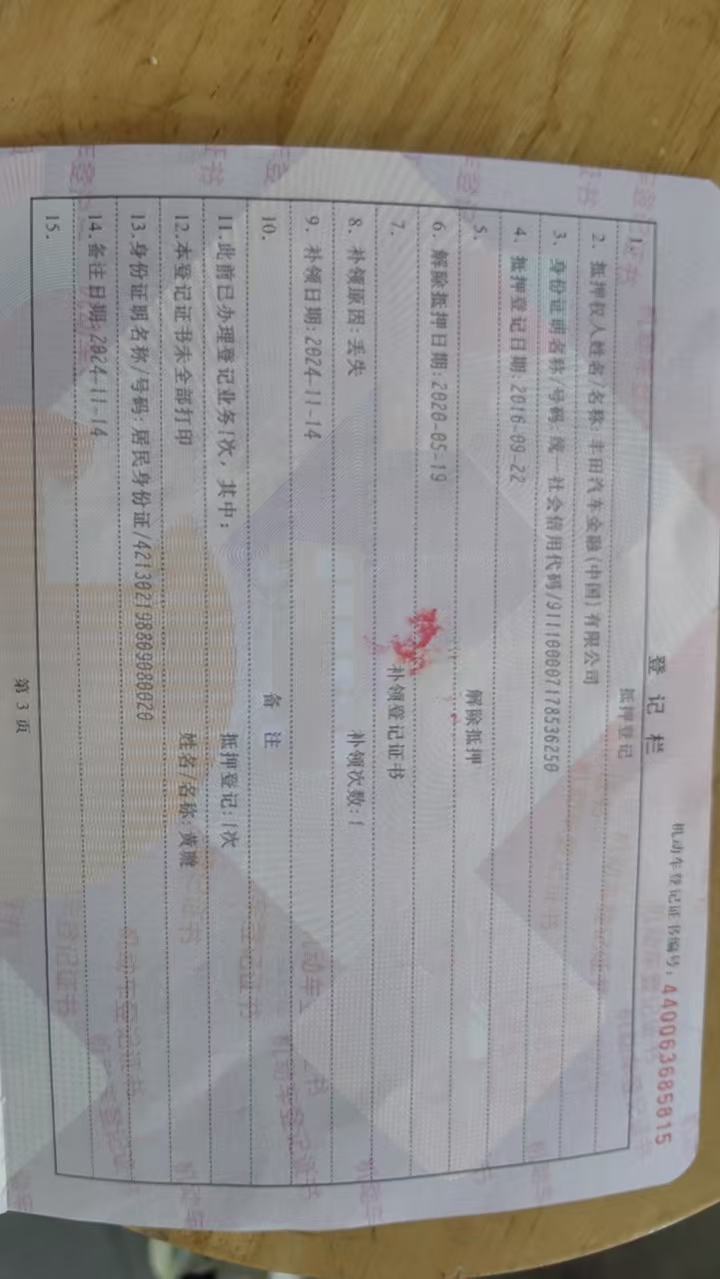 机动车登记证书编号：440063685815
登记栏
1. 抵押登记
2. 抵押权人姓名/名称：丰田汽车金融(中国)有限公司
3. 身份证明名称/号码：统一社会信用代码/911100007178536250
4. 抵押登记日期：2016-09-22
5. 解除抵押
6. 解除抵押日期：2020-05-19
7. 补领登记证书
8. 补领原因：丢失 补领次数：1
9. 补领日期：2024-11-14
10. 备注
11. 此前已办理登记业务1次，其中： 抵押登记：1次
12. 本登记证书未全部打印 姓名/名称：黄
13. 身份证明名称/号码：居民身份证/421302198809080020
14. 备注日期：2024-11-14
15.
第 3 页